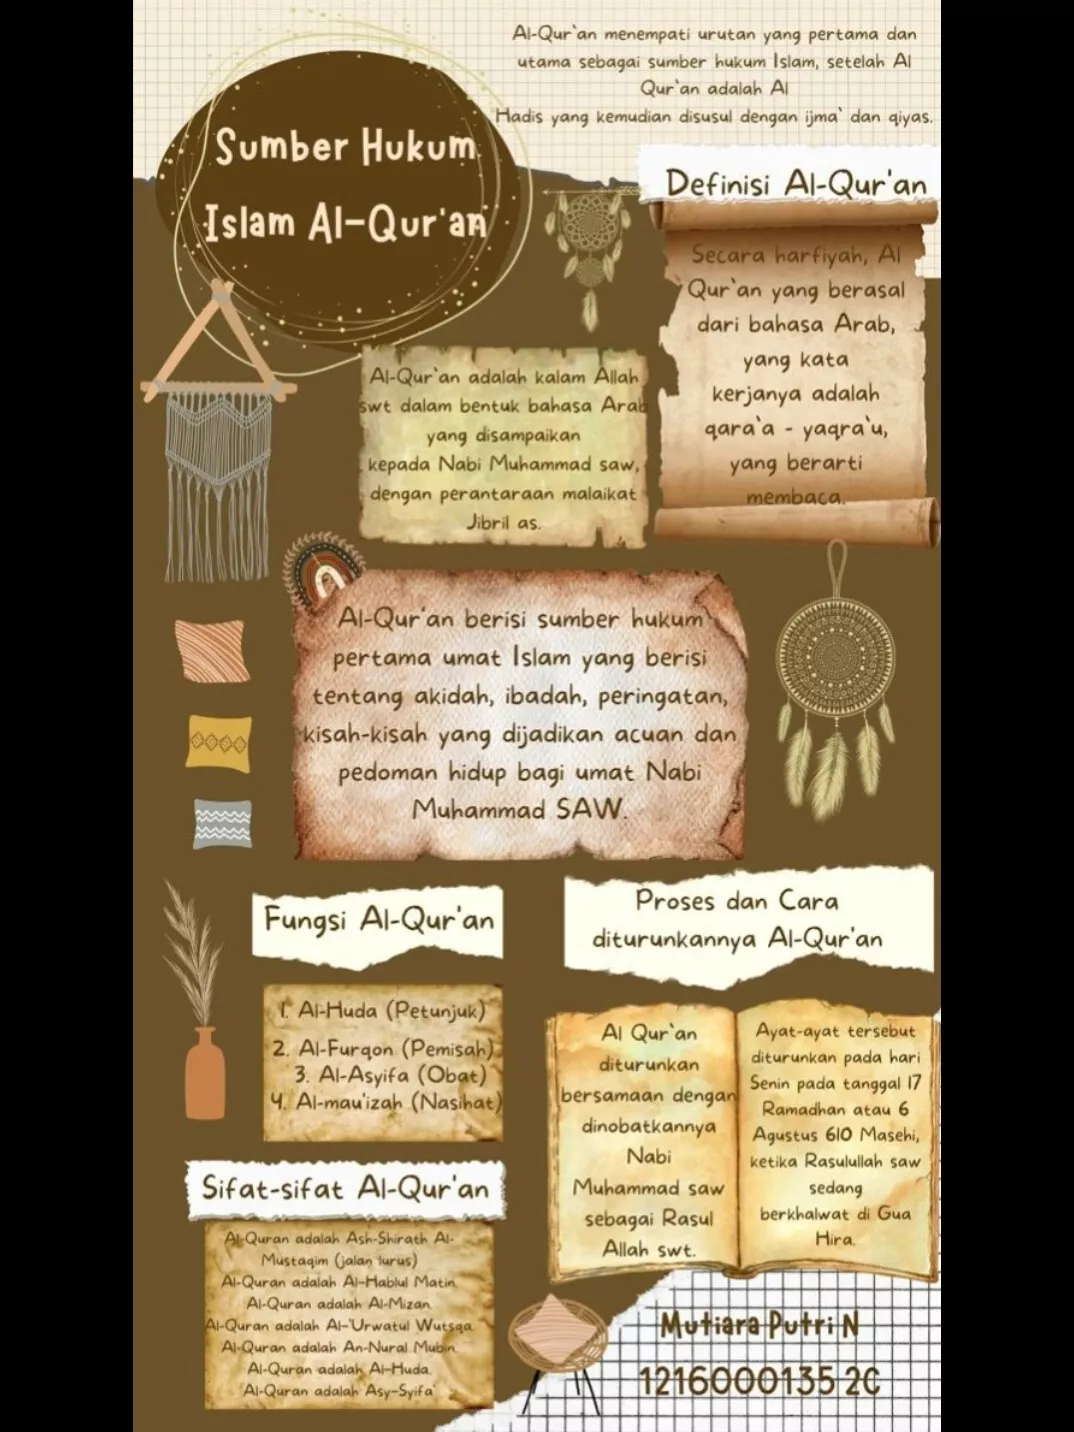 Al-Qur`an menempati urutan yang pertama dan
utama sebagai sumber hukum Islam, setelah Al
Qur`an adalah Al
Hadis yang kemudian disusul dengan ijma` dan qiyas.
Sumber Hukum
Islam Al-Qur'an
Definisi Al-Qur'an
Secara harfiyah, Al
Qur`an yang berasal
dari bahasa Arab,
yang kata
kerjanya adalah
qara`a - yaqra`u,
yang berarti
membaca.
Al-Qur`an adalah kalam Allah
swt dalam bentuk bahasa Arab
yang disampaikan
kepada Nabi Muhammad saw,
dengan perantaraan malaikat
Jibril as.
Al-Qur'an berisi sumber hukum
pertama umat Islam yang berisi
tentang akidah, ibadah, peringatan,
kisah-kisah yang dijadikan acuan dan
pedoman hidup bagi umat Nabi
Muhammad SAW.
Fungsi Al-Qur'an
1. Al-Huda (Petunjuk)
2. Al-Furqon (Pemisah)
3. Al-Asyifa (Obat)
4. Al-mau'izah (Nasihat)
Sifat-sifat Al-Qur'an
Al-Quran adalah Ash-Shirath Al-
Mustaqim (jalan lurus)
Al-Quran adalah Al-Hablul Matin.
Al-Quran adalah Al-Mizan.
Al-Quran adalah Al-'Urwatul Wutsqa.
Al-Quran adalah An-Nural Mubin.
Al-Quran adalah Al-Huda.
Al-Quran adalah Asy-Syifa'
Proses dan Cara
diturunkannya Al-Qur'an
Al Qur`an
diturunkan
bersamaan dengan
dinobatkannya
Nabi
Muhammad saw
sebagai Rasul
Allah swt.
Ayat-ayat tersebut
diturunkan pada hari
Senin pada tanggal 17
Ramadhan atau 6
Agustus 610 Masehi,
ketika Rasulullah saw
sedang
berkhalwat di Gua
Hira.
Mutiara Putri N
1216000135 2C